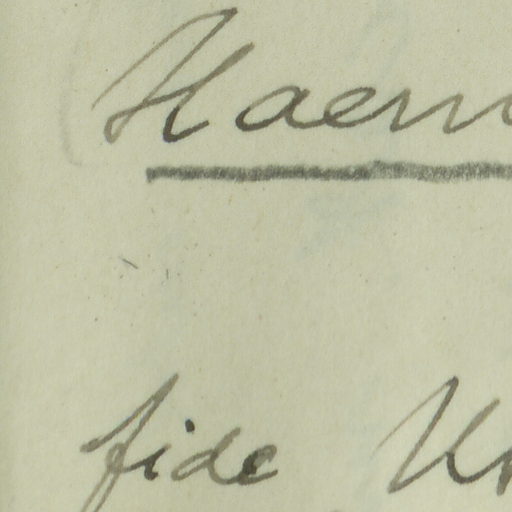 Haem
fide